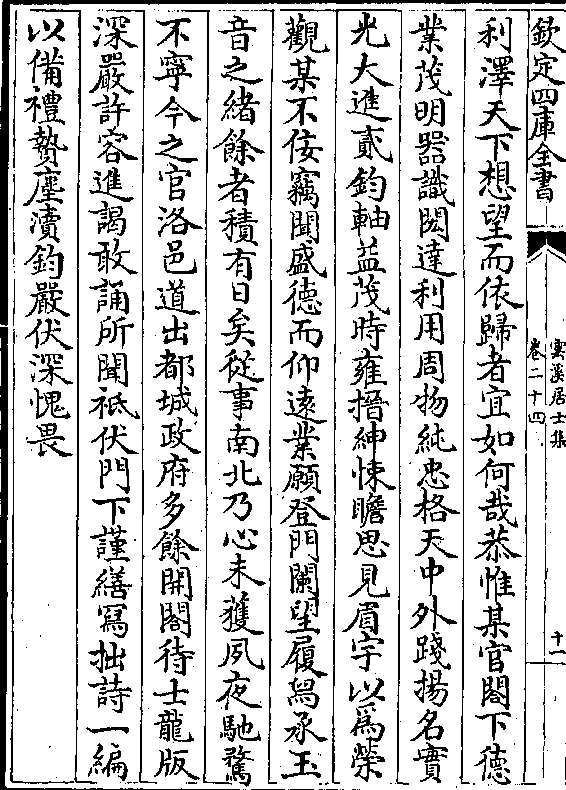 欽定四庫全書
雲溪居士集
卷二十四
十一
利澤天下想望而依歸者宜如何哉恭惟某官閤下德
業茂明器識閎達利用周物純忠格天中外踐揚名實
光大進貳鈞軸益茂時雍搢紳悚瞻思見眉宇以為榮
觀某不佞竊聞盛德而仰遠業願登門闌望履舄承玉
音之緒餘者積有日矣從事南北乃心未獲夙夜馳騖
不寧今之官洛邑道出都城政府多餘開閤待士龍版
深嚴許容進謁敢誦所聞祗伏門下謹繕寫拙詩一編
以備禮贄塵瀆鈞嚴伏深愧畏